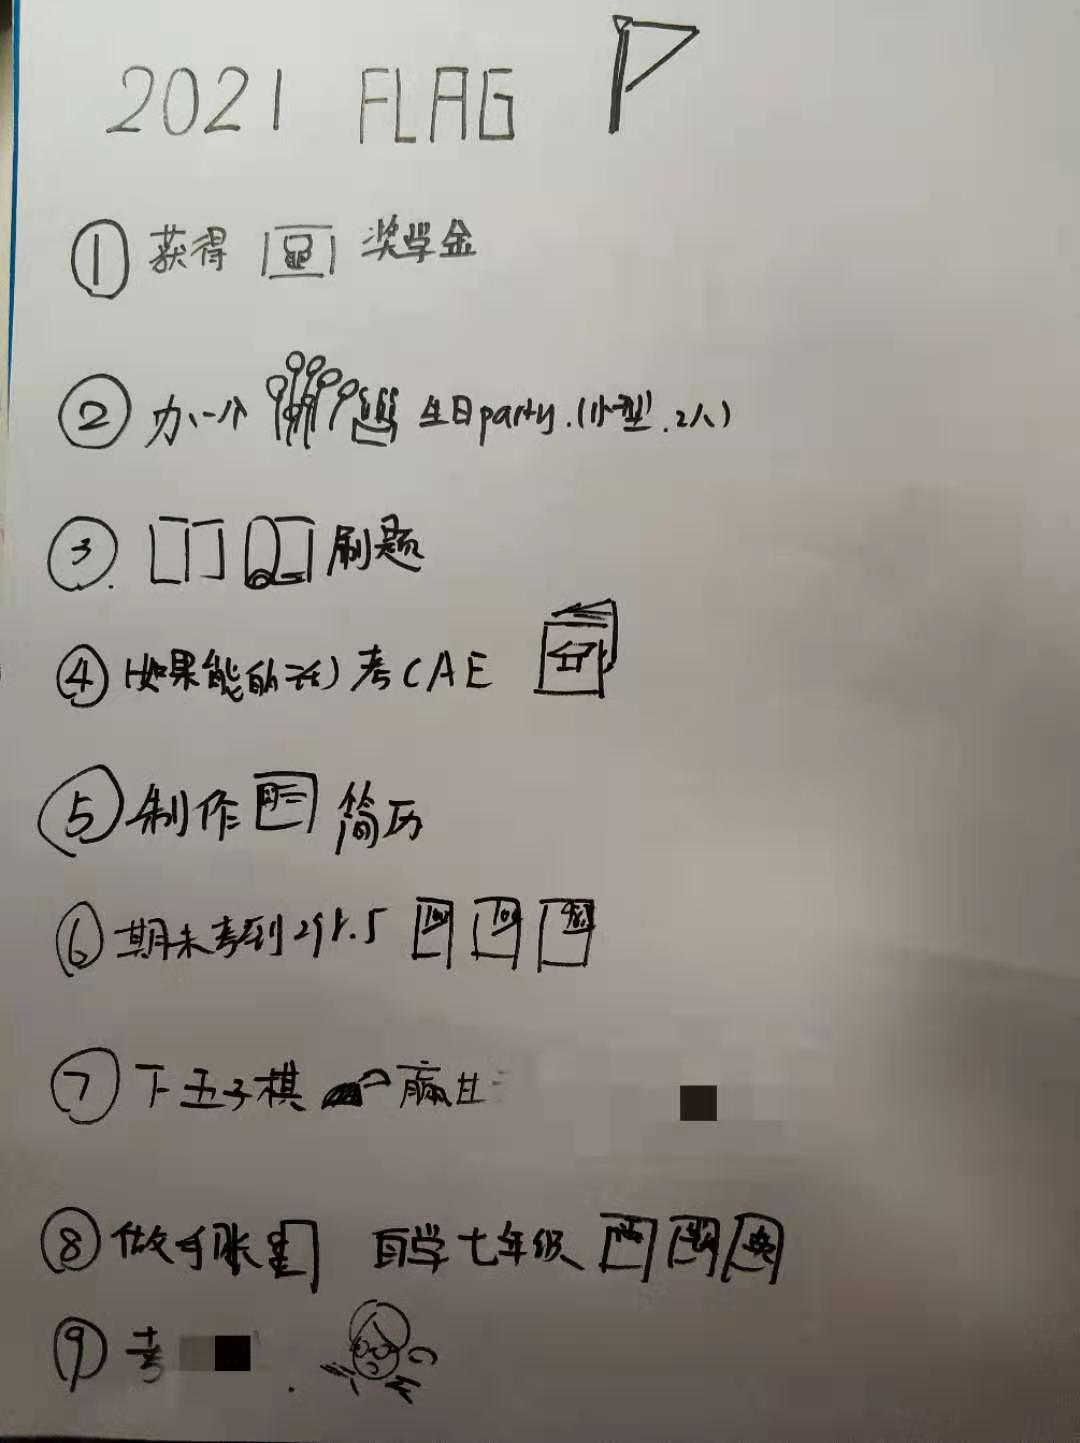 2021 FLAG
① 获得 奖学金
② 办一个 生日party.(小型.2人)
③ 刷题
④ (如果能的话)考CAE
⑤ 制作 简历
⑥ 期末考到298.5 100 100
⑦ 下五子棋 赢
⑧ 做手账 自学七年级
⑨ 考